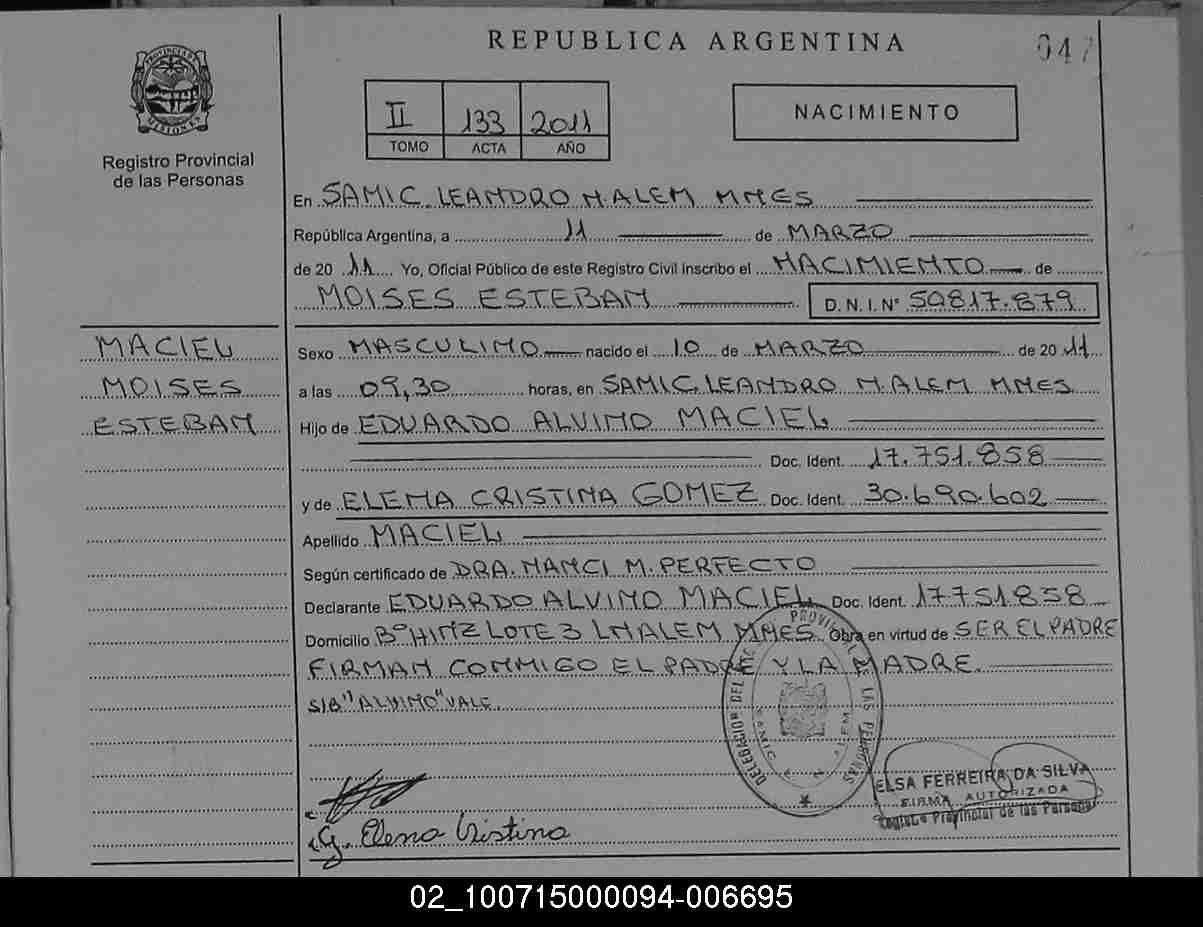 REPUBLICA ARGENTINA
047
PROVINCIA DE MISIONES
Registro Provincial
de las Personas
II 133 2011
TOMO ACTA AÑO
NACIMIENTO
En SAMIC LEANDRO N. ALEM MNES
República Argentina, a 11 de MARZO
de 20 11 Yo, Oficial Público de este Registro Civil inscribo el NACIMIENTO de
MOISES ESTEBAN D. N. I. Nº 50817.879
MACIEL
MOISES
ESTEBAN
Sexo MASCULINO nacido el 10 de MARZO de 20 11
a las 09,30 horas, en SAMIC LEANDRO N. ALEM MNES
Hijo de EDUARDO ALVINO MACIEL
Doc. Ident. 17.751.858
y de ELENA CRISTINA GOMEZ Doc. Ident. 30.690.602
Apellido MACIEL
Según certificado de DRA. NANCI M. PERFECTO
Declarante EDUARDO ALVINO MACIEL Doc. Ident. 17751858
Domicilio Bº HINZ LOTE 3 LNALEM MNES Obra en virtud de SER EL PADRE
FIRMAN CONMIGO EL PADRE Y LA MADRE.
S/B "ALVINO" VALE.
DELEGACION DEL REGISTRO PROVINCIAL DE LAS PERSONAS
SAMIC L. N. ALEM
ELSA FERREIRA DA SILVA
FIRMA AUTORIZADA
Registro Provincial de las Personas
G. Elena Cristina
02_100715000094-006695